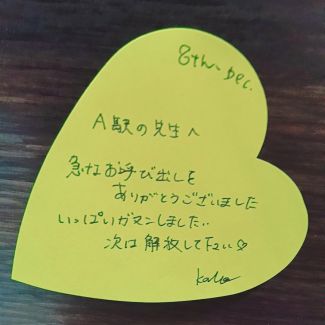 8th. Dec.
A駅の先生へ
急なお呼び出しを
ありがとうございました
いっぱいガマンしました..
次は解放して下さい♡